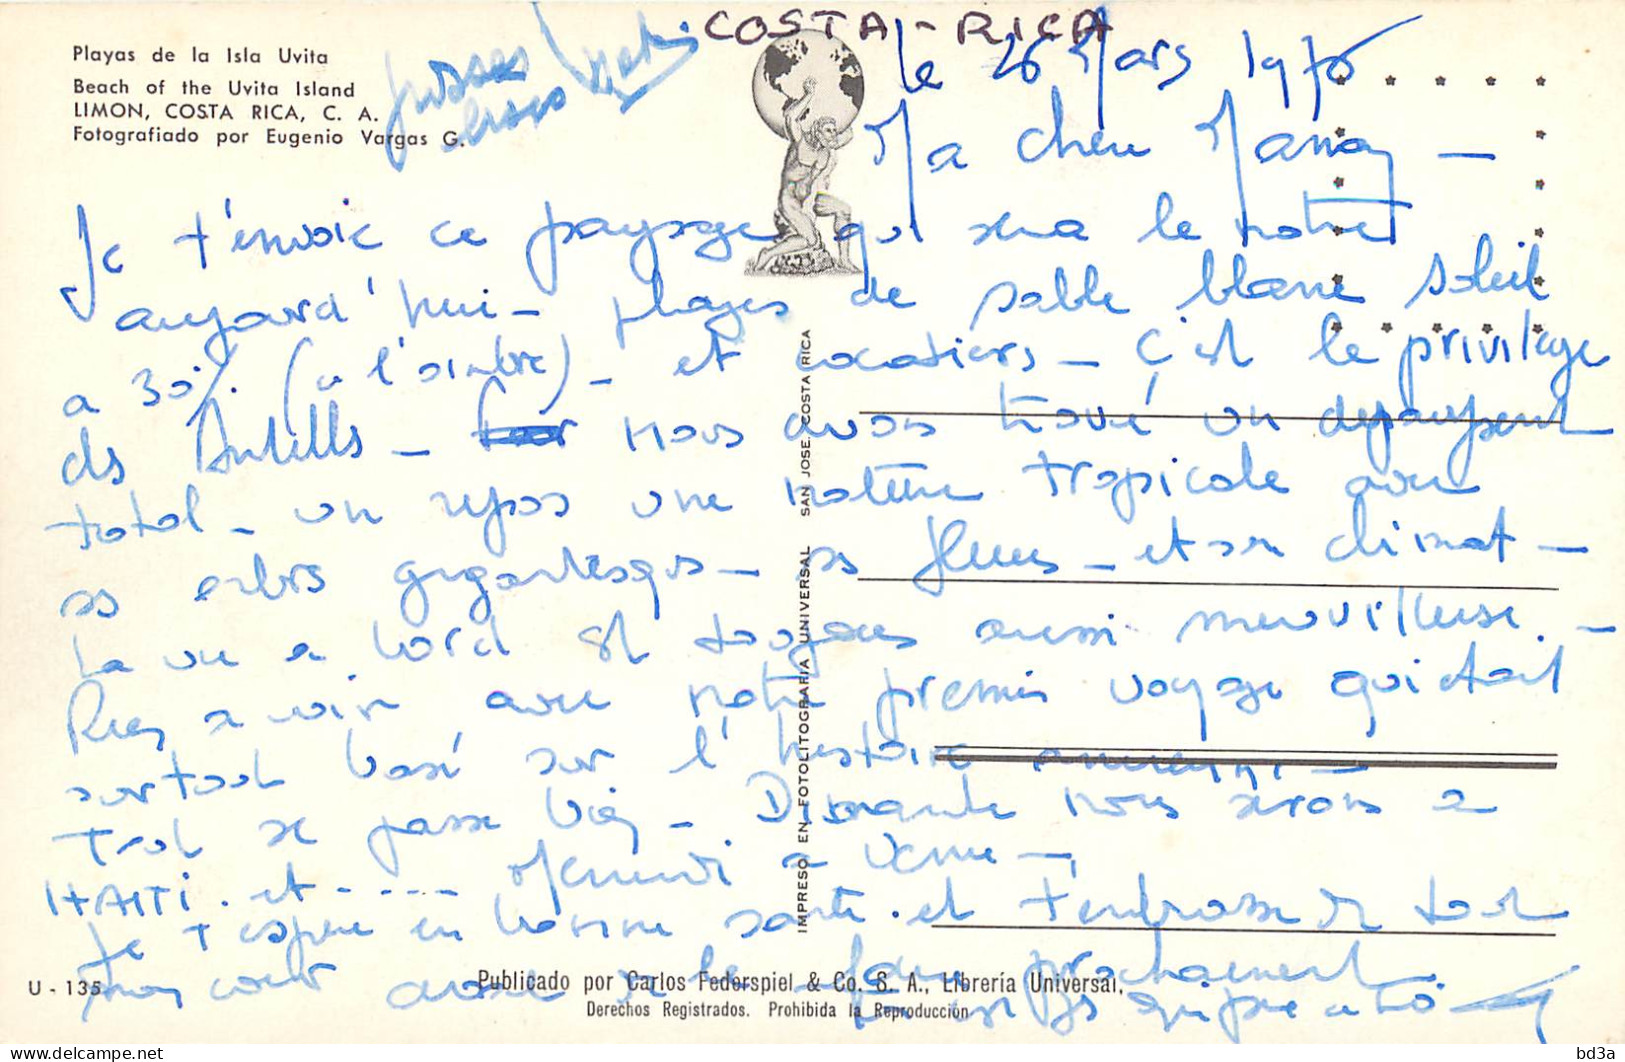 COSTA-RICA
Playas de la Isla Uvita
Beach of the Uvita Island
LIMON, COSTA RICA, C. A.
Fotografiado por Eugenio Vargas G.
le 26 Mars 1976
Ma chere Maman -
Je t'envoie ce paysage qui sera le notre
aujourd'hui - plages de sable blanc soleil
a 30%. (a l'ombre) - et cocotiers - C'est le privilege
ds Antilles - nous avons trouvé un depaysement
total - un repos une nature tropicale avec
ss arbres gigantesques - ss fleurs - et son climat -
La vie a bord est toujours aussi merveilleuse. -
Rien a voir avec notre premier voyage qui etait
surtout basé sur l'histoire ancienne -
Tout se passe bien - Dimanche nous serons a
HAITI. et ----- Mercredi a
Je t'espere en bonne santé. et t'embrasse de tout
mon coeur avec prochainement
IMPRESO EN FOTOLITOGRARIA UNIVERSAL SAN JOSE. COSTA RICA
U - 135
Publicado por Carlos Federspiel & Co. S. A., Librería Universal,
Derechos Registrados. Prohibida la Reproducción
bd3a